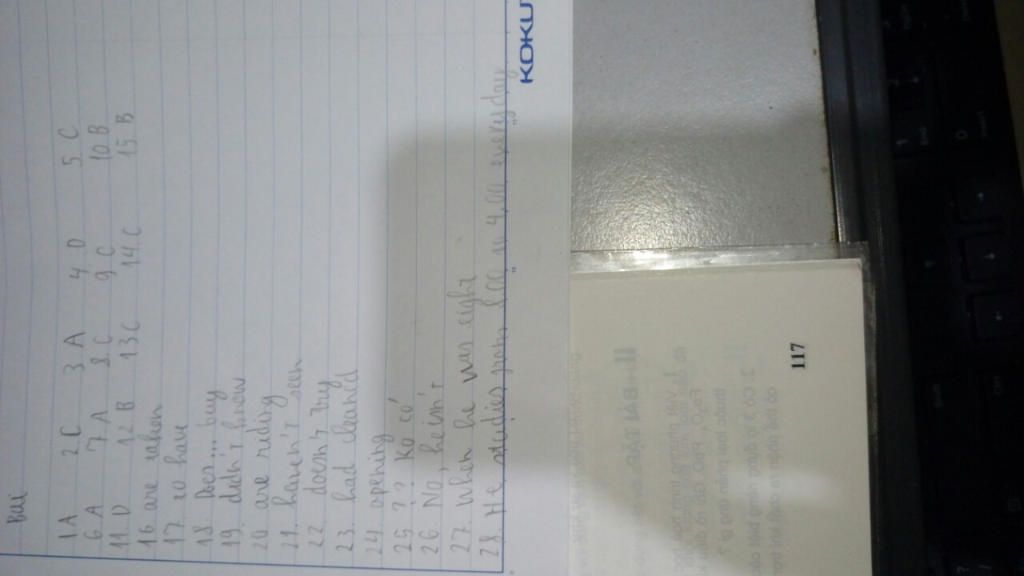 Bài
1A 2C 3A 4.D 5.C
6.A 7.A 8.C 9.C 10.B
11.D 12 B 13C 14.C 15 B
16 are taken
17 to have
18 Does... buy
19. didn't know
20 are riding
21. haven't seen
22 doesn't buy
23. had cleand
24. opening
25 ?? Ko có
26 No, he isn't
27. When he was eight
28. He studies from to 4.00 everyday
KOKU
117